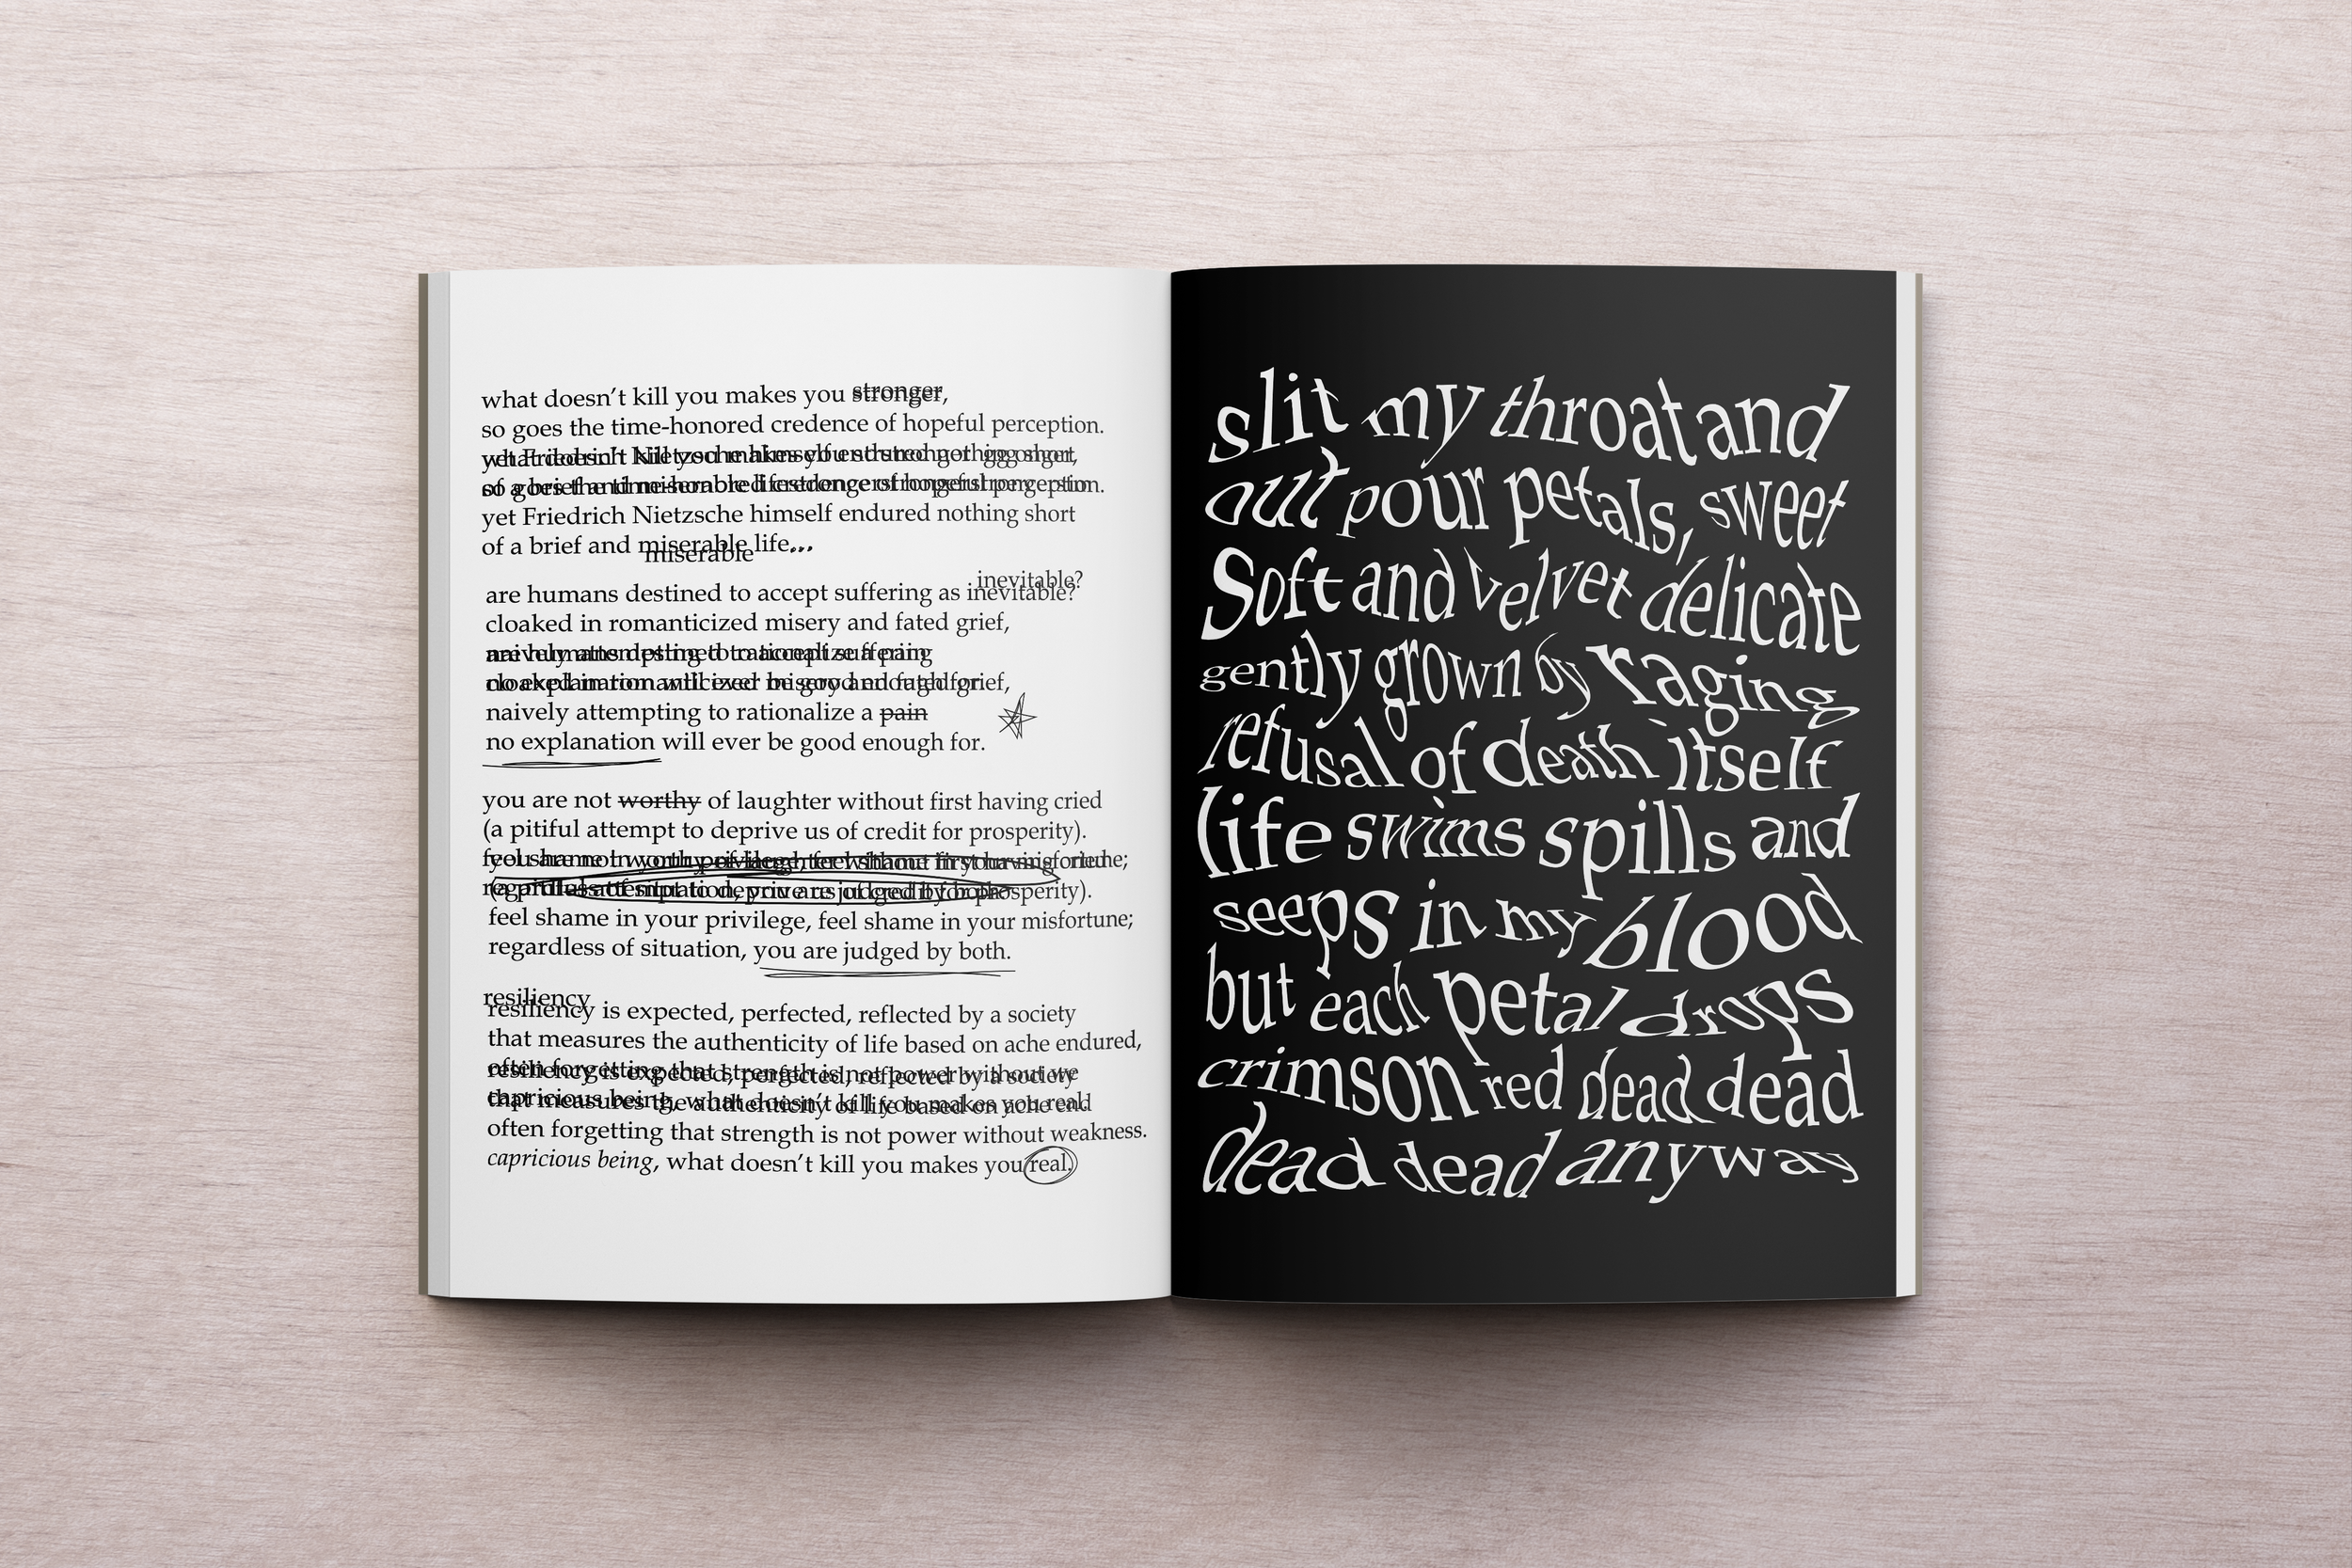 what doesn't kill you makes you stronger,
so goes the time-honored credence of hopeful perception.
yet Friedrich Nietzsche himself endured nothing short
of a brief and miserable life...
miserable
inevitable?
are humans destined to accept suffering as inevitable?
cloaked in romanticized misery and fated grief,
naively attempting to rationalize a pain
no explanation will ever be good enough for.
you are not worthy of laughter without first having cried
(a pitiful attempt to deprive us of credit for prosperity).
feel shame in your privilege, feel shame in your misfortune;
regardless of situation, you are judged by both.
resiliency
resiliency is expected, perfected, reflected by a society
that measures the authenticity of life based on ache endured,
often forgetting that strength is not power without weakness.
capricious being, what doesn't kill you makes you real.
slit my throat and
out pour petals, sweet
Soft and velvet delicate
gently grown by raging
refusal of death itself
life swims spills and
seeps in my blood
but each petal drops
crimson red dead dead
dead dead anyway